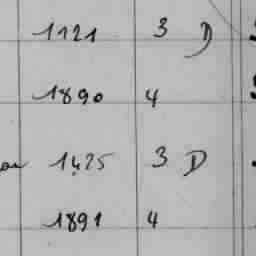 1121 3 D
1890 4
1425 3 D
1891 4